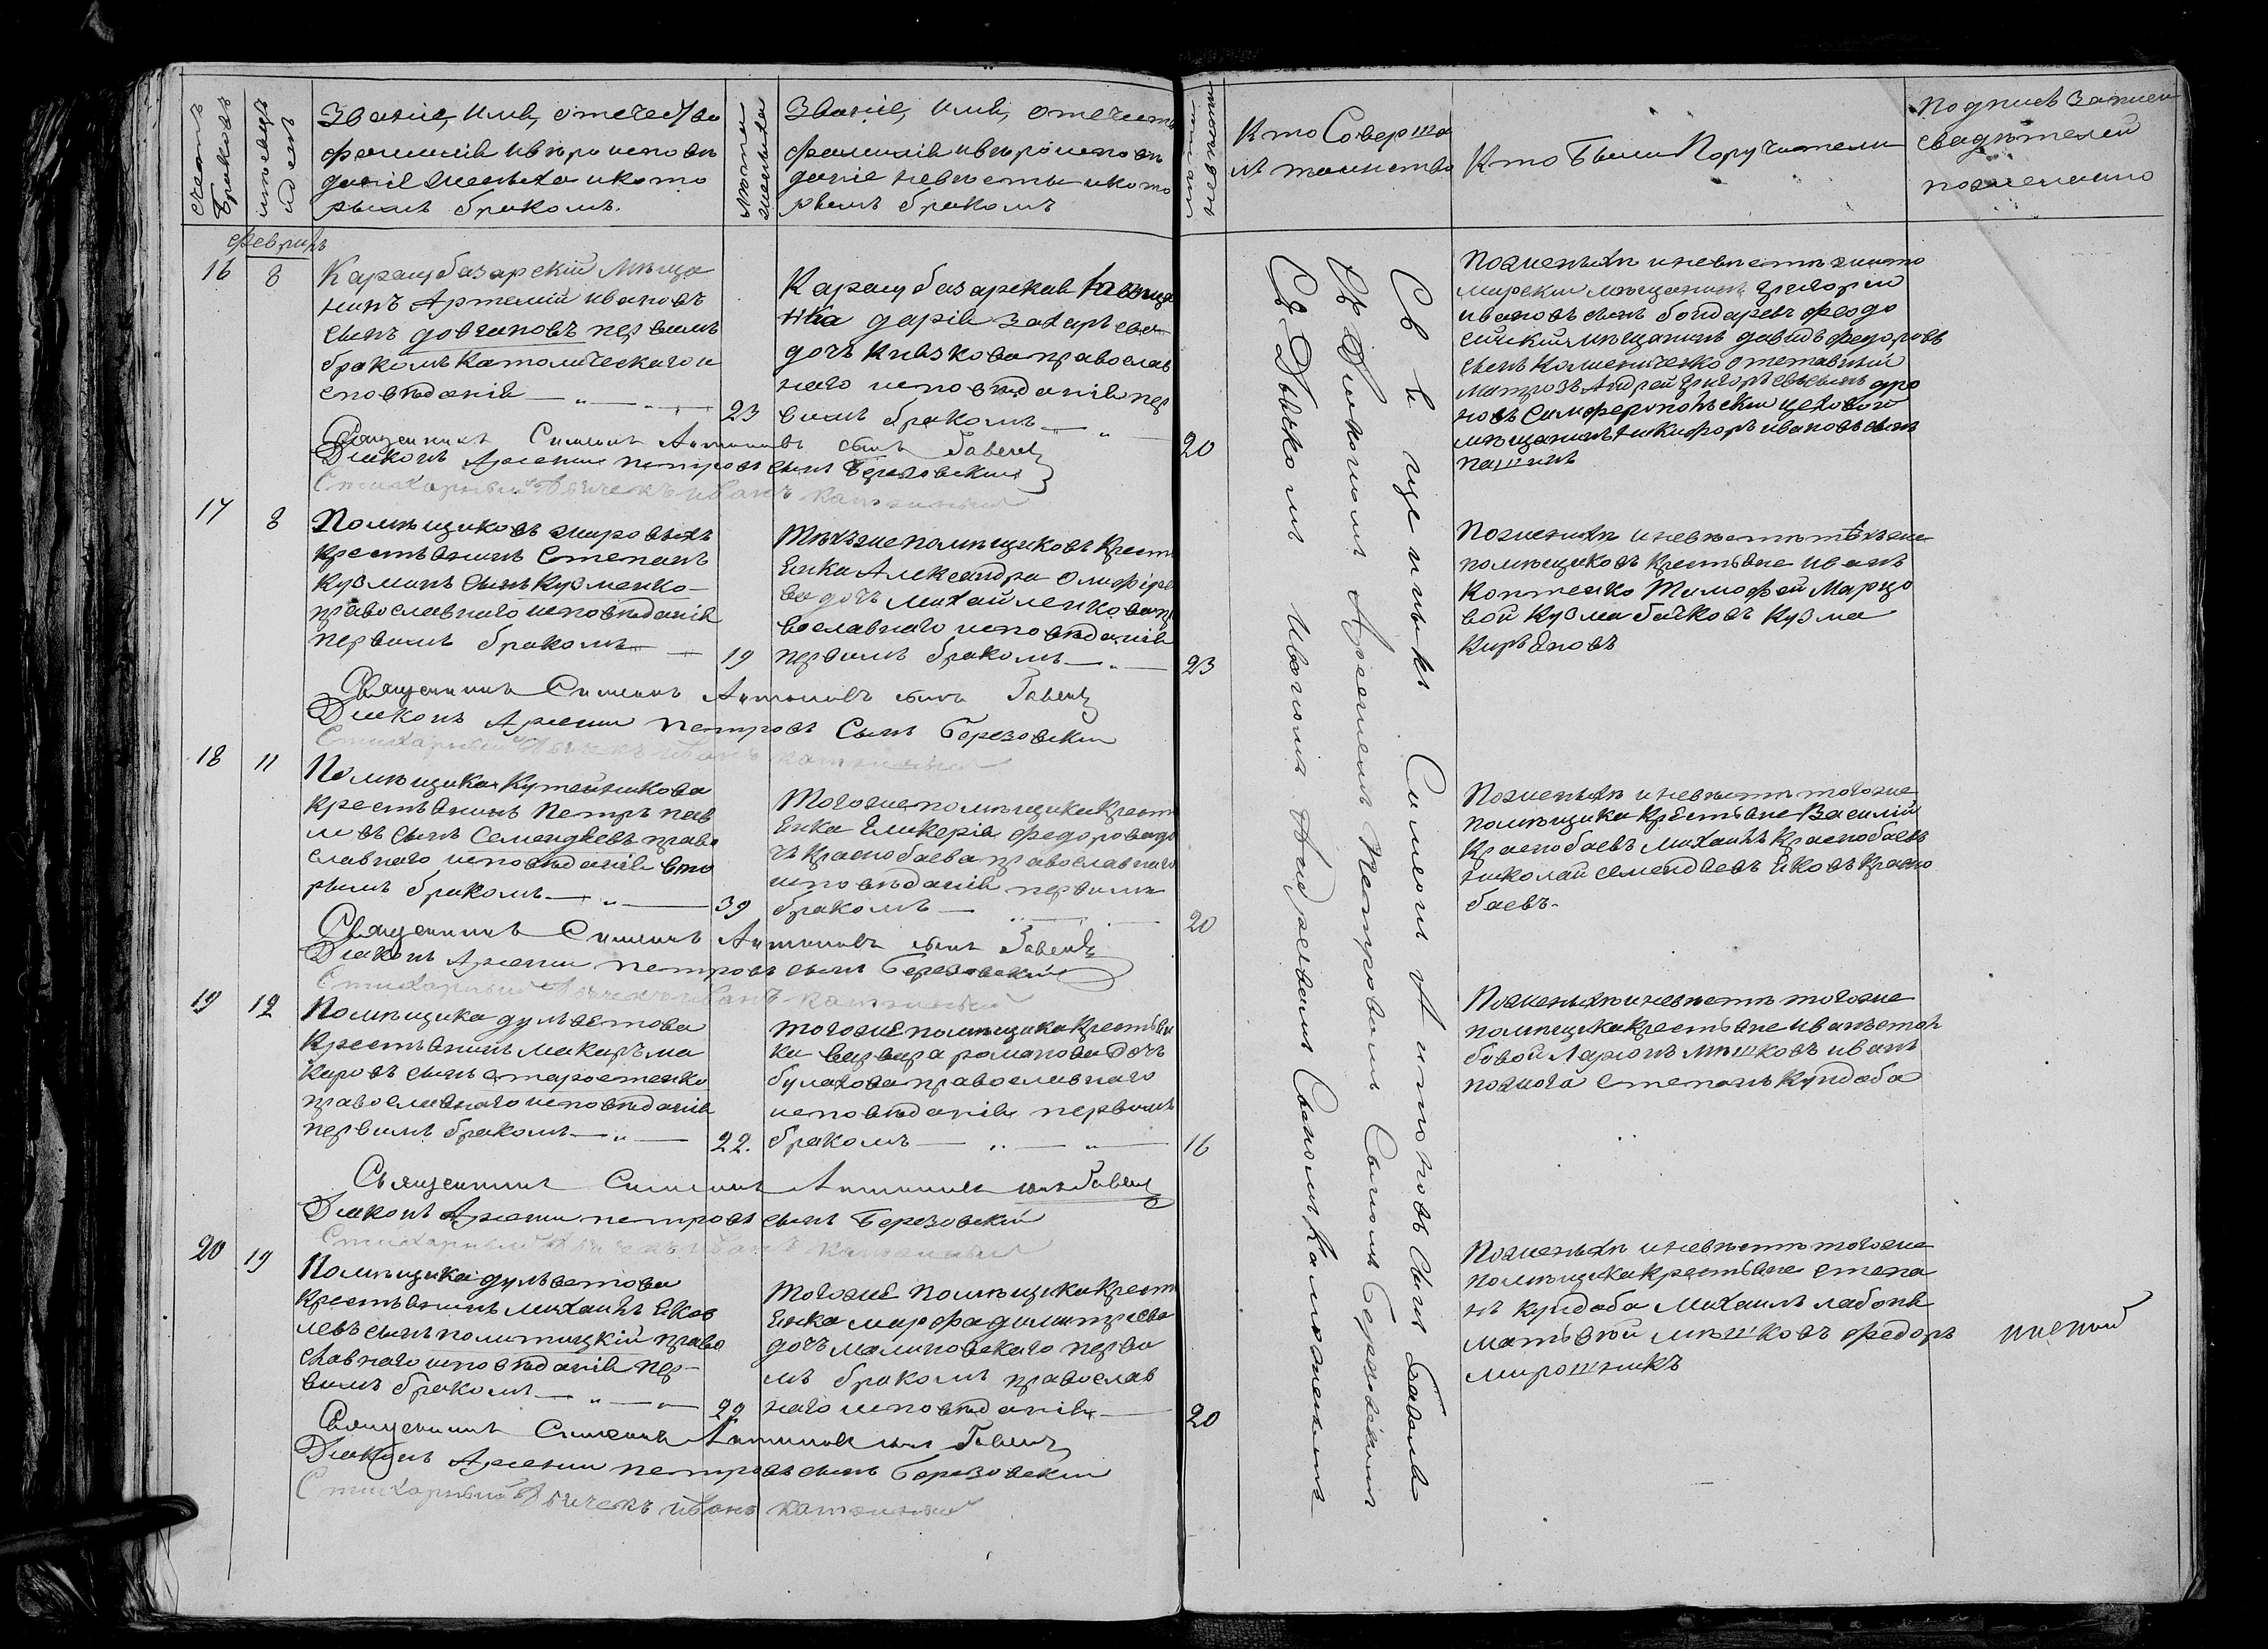 Счетъ браковъ
мѣсяцъ и день
Званіе, имя, отечество
фамилія и вѣроисповѣ
даніе жениха и кото
рымъ бракомъ.
лѣта жениха
Званіе, имя, отечест
фамилія и вѣроисповѣ
даніе невѣсты и кото
рымъ бракомъ
лѣта невѣсты
Кто Соверша
лъ таинство
Кто были Поручители
подпись записи
свидѣтелей
по желанию
февраль
16
8
Карасубазарскій мѣща
нинъ Артемій ивановъ
сынъ довгиновъ первымъ
бракомъ католическаго и
сповѣданія
23
Карасубазарская
дарія захарьева
дочь Князкова православ
наго исповѣданія пер
вымъ бракомъ
20
По женихѣ и невѣстѣ жито
мирскій мѣщанинъ григорій
ивановъ сынъ бондаревъ феодо
сійскій мѣщанинъ давидъ федоровъ
сынъ отставный
матрозъ Андрей григорьевъ сынъ
новъ симферопольскій цеховой
мѣщанинъ никифоръ ивановъ сынъ
пашинъ
Священникъ Симеонъ Антоновъ сынъ
Диаконъ Арсений петровъ сынъ Березовский
Стихарный Дьячекъ иванъ
17
8
Помѣщиковъ
крестьянинъ Степанъ
Кузминъ сынъ Кузменко
православнаго исповѣданія
первымъ бракомъ
19
Тѣхъ же помѣщиковъ крест
янка Александра
ва дочь Михайленкова пр
вославнаго исповѣданія
первымъ бракомъ
23
По женихѣ и невѣстѣ тѣхъ же
помѣщиковъ крестьяне иванъ
Коптенко Тимофей Марцо
вой Кузма бачковъ Кузма
Кирьяновъ
Священникъ Симеонъ Антоновъ сынъ
Диаконъ Арсений петровъ Сынъ Березовский
Стихарный Дьячекъ иванъ
18
11
Помѣщика Кутейникова
крестьянинъ Петръ пав
ловъ сынъ Семендяевъ право
славнаго исповѣданія вто
рымъ бракомъ
39
Того же помѣщика крест
янка Гликерія федорова до
чь Краснобаева православнаго
исповѣданія первымъ
бракомъ
20
По женихѣ и невѣстѣ того же
помѣщика крестьяне Василій
Краснобаевъ Михаилъ Краснобаевъ
николай семендяевъ яковъ красно
баевъ
Священникъ Симеонъ Антоновъ сынъ
Диаконъ Арсений петровъ сынъ Березовский
Стихарный Дьячекъ иванъ
19
12
Помѣщика дульветова
крестьянинъ макаръ ма
каровъ сынъ старостенко
православнаго исповѣданія
первымъ бракомъ
22.
того же помѣщика крестьян
ка варвара романова дочь
булахова православнаго
исповѣданія первымъ
бракомъ
16
По женихѣ и невѣстѣ того же
помѣщика крестьяне иванъ стол
бовой Ларіонъ мѣшковъ иванъ
Степанъ Кундаба
Священникъ Симеонъ Антоновъ сынъ
Диаконъ Арсений петровъ сынъ Березовский
Стихарный Дьячекъ иванъ
20
19
Помѣщика дульветова
крестьянинъ михаилъ яков
левъ сынъ право
славнаго исповѣданія пер-
вымъ бракомъ
22
того же помѣщика крест
янка марфа дмитріева
дочь малиновскаго первы
мъ бракомъ православ
наго исповѣданія
20
По женихѣ и невѣстѣ того же
помѣщика крестьяне степа
нъ кундаба Михаилъ
матвѣй мѣшковъ федоръ
мирошникъ
Священникъ Симеонъ Антоновъ сынъ
Диаконъ Арсений петровъ сынъ Березовский
Стихарный Дьячекъ иванъ
Священникъ Симеонъ Антоновъ Сынъ
Съ Диакономъ Арсениемъ Петровымъ Сыномъ Березовскимъ
Съ Дьячкомъ Иваномъ Андреевымъ Сыномъ